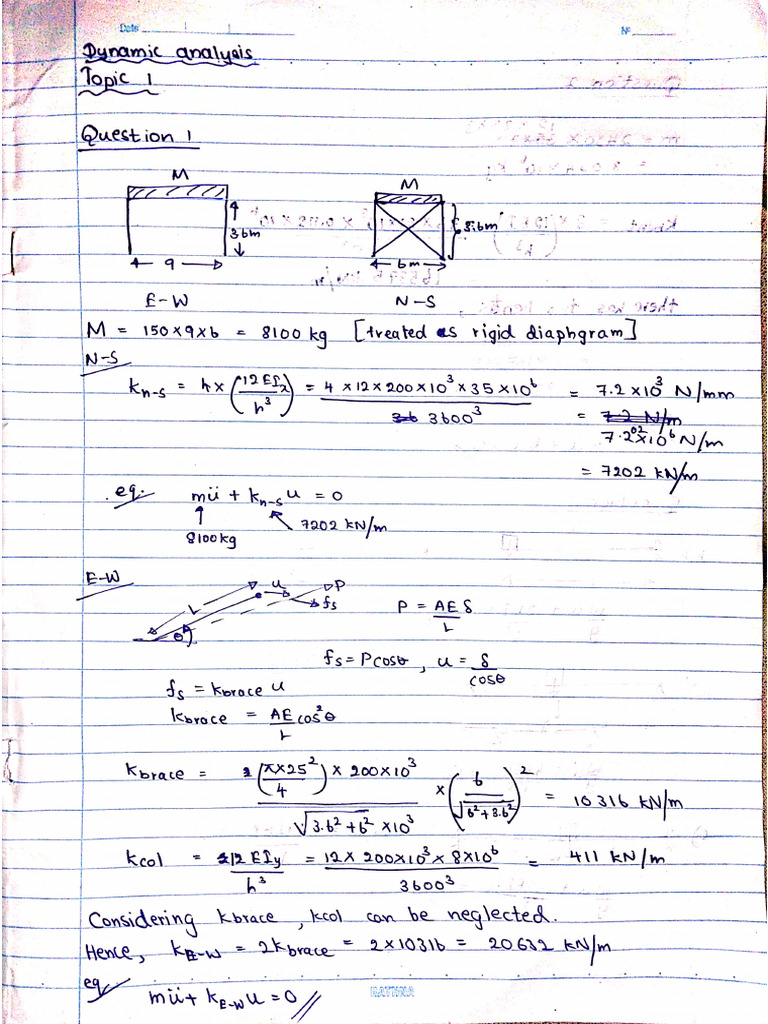 Date
No
Dynamic analysis
Topic 1
Question 1
M
M
3.6m
3.6m
9
6m
E-W
N-S
M = 150×9×6 = 8100 kg [treated as rigid diaphgram]
N-S
k_n-s = 4 × (12EI_x / h³) = 4 × 12 × 200 × 10³ × 35 × 10⁶ / 3600³ = 7.2 × 10³ N/mm
= 7.2 N/m
7.202 × 10⁶ N/m
= 7202 kN/m
eq. mü + k_n-s u = 0
8100kg
7202 kN/m
E-W
L θ u P f_s
P = AE δ / L
f_s = P cosθ , u = δ / cosθ
f_s = k_brace u
k_brace = AE cos²θ / L
k_brace = (π×25² / 4) × 200×10³ / √3.6²+6² ×10³ × (6 / √6²+3.6²)² = 10316 kN/m
k_col = 12 EI_y / h³ = 12 × 200×10³ × 8×10⁶ / 3600³ = 411 kN/m
Considering k_brace, k_col can be neglected.
Hence, k_E-W = 2k_brace = 2 × 10316 = 20632 kN/m
eq mü + k_E-W u = 0 //
RATHNA